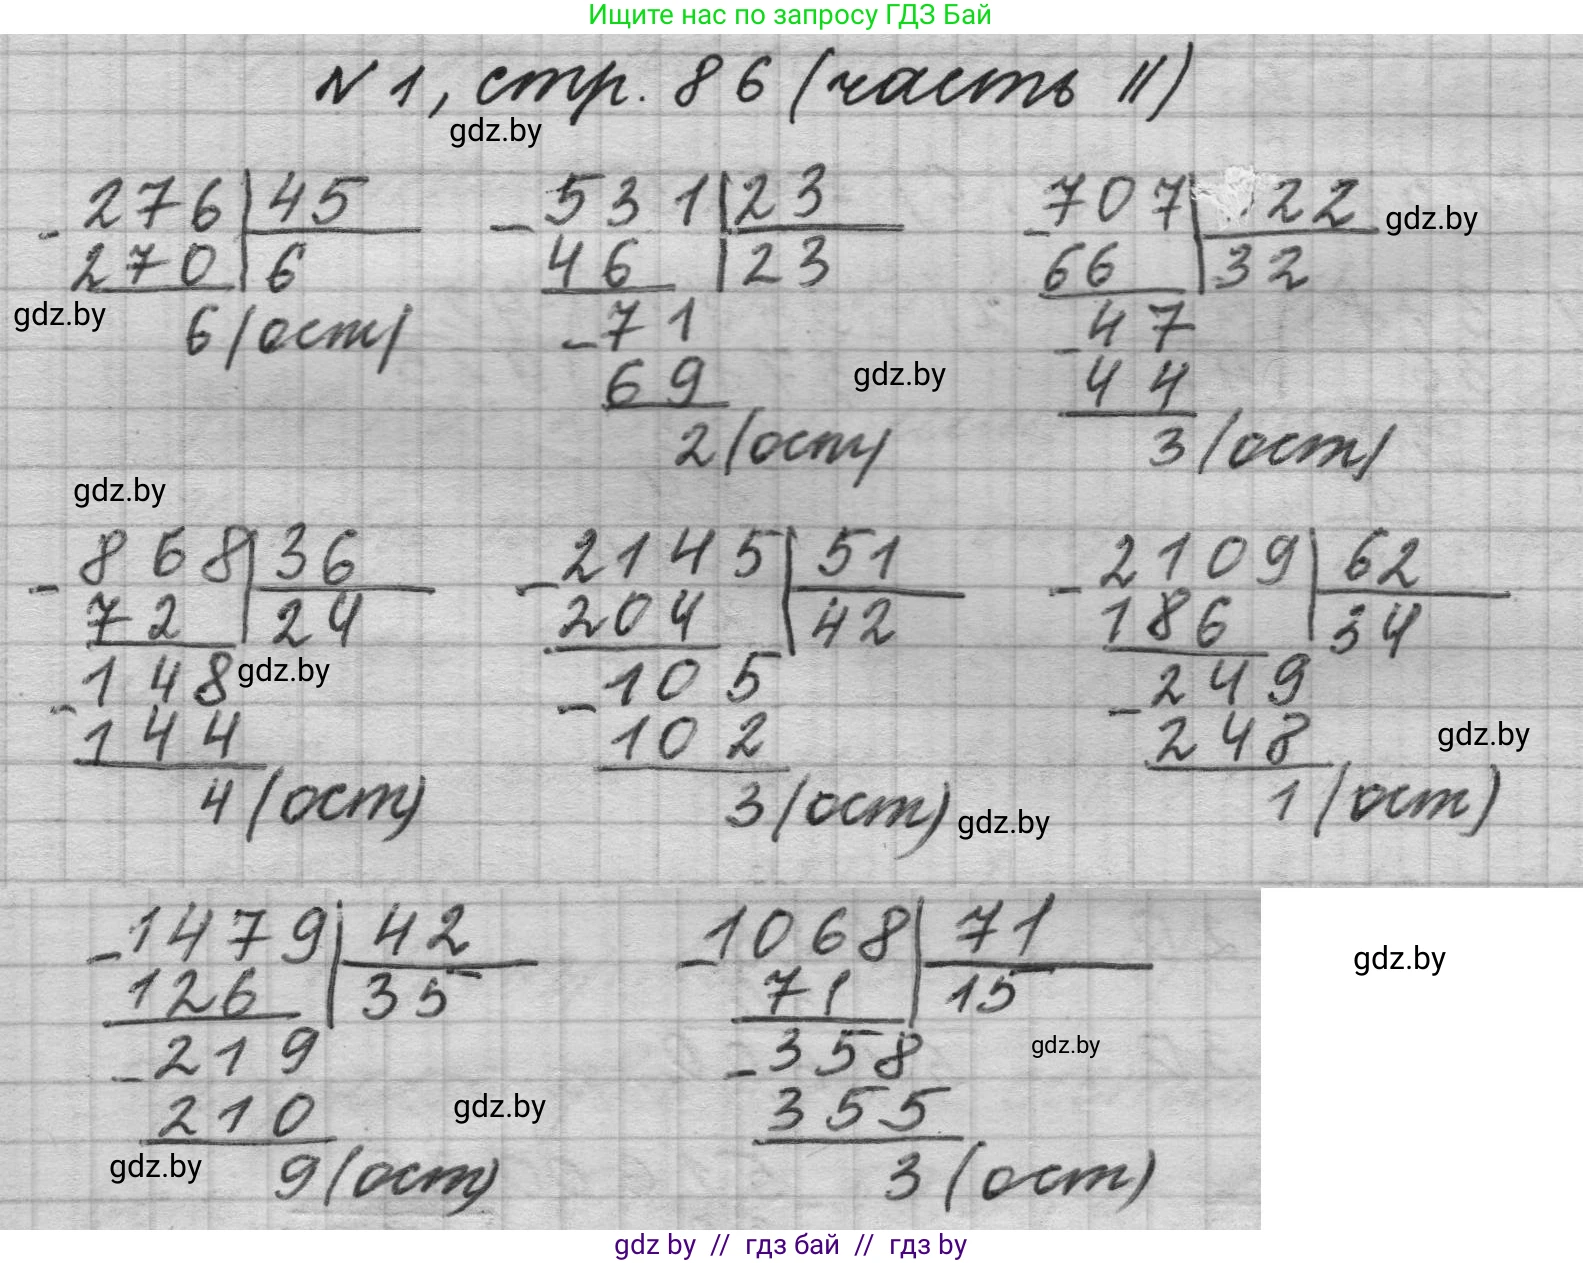 Ищите нас по запросу ГДЗ Бай
N 1, стр. 86 (часть II)
gdz.by
- 276 | 45
270 | 6
6 (ост)
gdz.by
- 531 | 23
46 | 23
- 71
69
2 (ост)
gdz.by
- 707 | 22
66 | 32
- 47
44
3 (ост)
gdz.by
gdz.by
- 868 | 36
72 | 24
- 148
144
4 (ост)
gdz.by
- 2145 | 51
204 | 42
- 105
102
3 (ост)
gdz.by
- 2109 | 62
186 | 34
- 249
248
1 (ост)
gdz.by
- 1479 | 42
126 | 35
- 219
210
9 (ост)
gdz.by
gdz.by
- 1068 | 71
71 | 15
- 358
355
3 (ост)
gdz.by
gdz.by
gdz by // гдз бай // гдз by